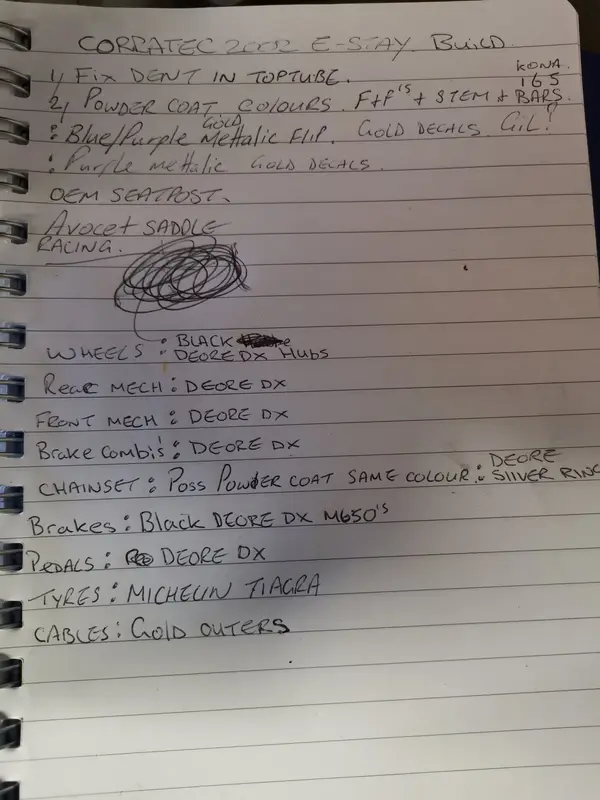 CORRATEC 2002 E-STAY BUILD.
1, FIX DENT IN TOPTUBE.
KONA.
165
2, POWDER COAT COLOURS. F+F'S + STEM + BARS.
GOLD
: Blue/Purple Mettalic FLIP. GOLD DECALS GIL?
: Purple mettalic GOLD DECALS.
OEM SEATPOST.
Avocet SADDLE
RACING.
WHEELS : BLACK
: DEORE DX HUBS
Rear MECH : DEORE DX
FRONT MECH : DEORE DX
Brake Combi's : DEORE DX
CHAINSET : Poss Powder COAT SAME COLOUR : DEORE
SILVER RING
Brakes : Black DEORE DX M650's
PEDALS : DEORE DX
TYRES : MICHELIN TIAGRA
CABLES : Gold OUTERS